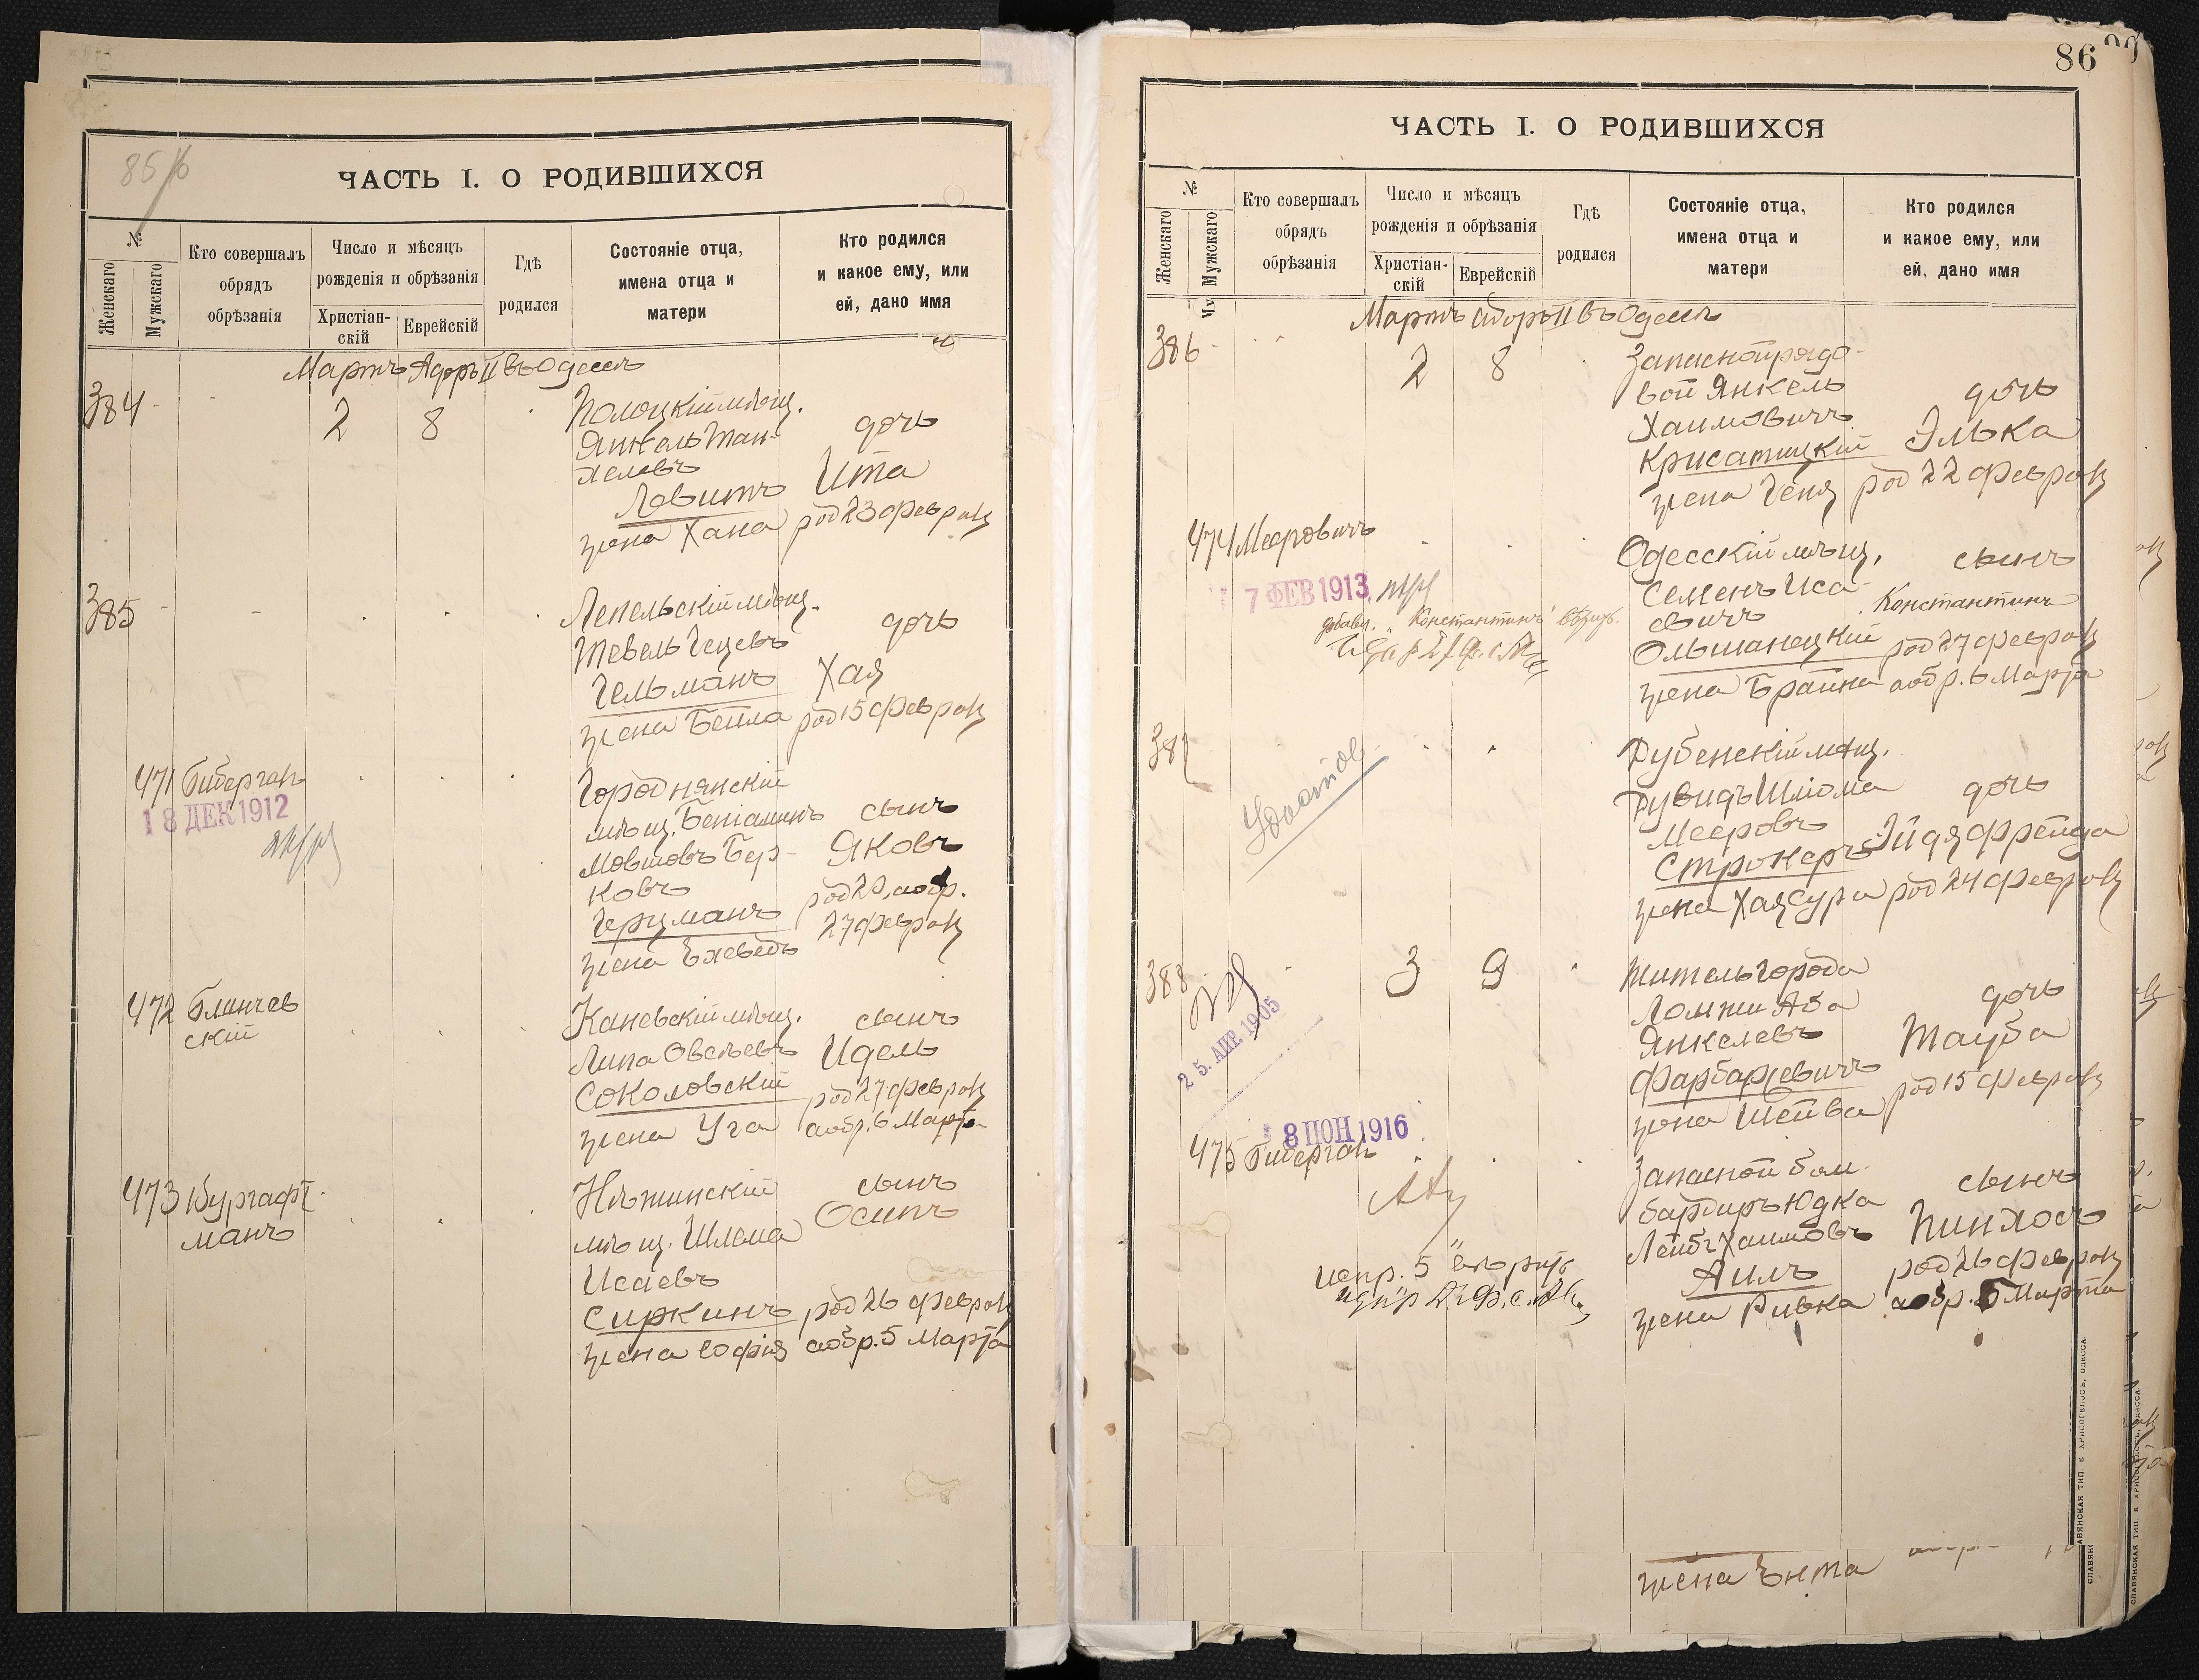 85/6
ЧАСТЬ I. О РОДИВШИХСЯ
№
Женскаго
Мужскаго
Кто совершалъ
обрядъ
обрѣзанія
Число и мѣсяцъ
рожденія и обрѣзанія
Христіан-
скій
Еврейскій
Гдѣ
родился
Состояніе отца,
имена отца и
матери
Кто родился
и какое ему, или
ей, дано имя
Мартъ Адоръ II въ Одессѣ
384
2
8
Полоцкій мѣщ.
Янкель Тан-
хелевъ
Левитъ
жена Хана
дочь
Ита
род 23 феврал
385
Лепельскій мѣщ.
Тевель Гецевъ
Гельманъ
жена Бейла
дочь
Хая
род 15 феврал
471 Биберган
18 ДЕК 1912
Городнянскій
мѣщ. Беніаминъ
Мовшовъ Бер-
ковъ
Герцманъ
жена Ехеведъ
сынъ
Яковъ
род 20, а обр.
27 феврал
472 Блинчев
скій
Каневскій мѣщ.
Липа Овсѣевъ
Соколовскій
жена Уга
сынъ
Идель
род 27 феврал
а обр. 6 Марта
473 Бургафт-
манъ
Нѣжинскій
мѣщ. Шлема
Исаевъ
Сиркинъ
жена Софія
сынъ
Осипъ
род 26 феврал
а обр. 5 Марта
86
ЧАСТЬ I. О РОДИВШИХСЯ
№
Женскаго
Мужскаго
Кто совершалъ
обрядъ
обрѣзанія
Число и мѣсяцъ
рожденія и обрѣзанія
Христіан-
скій
Еврейскій
Гдѣ
родился
Состояніе отца,
имена отца и
матери
Кто родился
и какое ему, или
ей, дано имя
Мартъ Адоръ II въ Одессѣ
386
2
8
Запасной рядо-
вой Янкель
Хаимовичъ
Крисатицкій
жена Геня
дочь
Элька
род 22 феврал
474 Меерovичъ
7 ФЕВ 1913
добавл. "Константинъ"
Одесскій мѣщ.
Семенъ Иса-
евичъ
Ольшанецкій
жена Брайна
сынъ
Константинъ
род 27 феврал
а обр. 6 Марта
387
Дубенскій мѣщ.
Дувидъ Шлiома
Мееровъ
Строкеръ
жена Хая Сура
дочь
Эйдя Фрейда
род 24 феврал
388
25. АПР. 1905
3
9
Житель города
Ломжи Аба
Янкелевъ
Фарбаржевичъ
жена Шейва
дочь
Тауба
род 15 феврал
8 ІЮН 1916
475 Биберган
испр. 5
Запасной бом-
бардиръ Юдка
Лейбъ Хаимовъ
Аилъ
жена Ривка
сынъ
Пинхосъ
род 26 феврал
а обр. 5 Марта
жена Ента